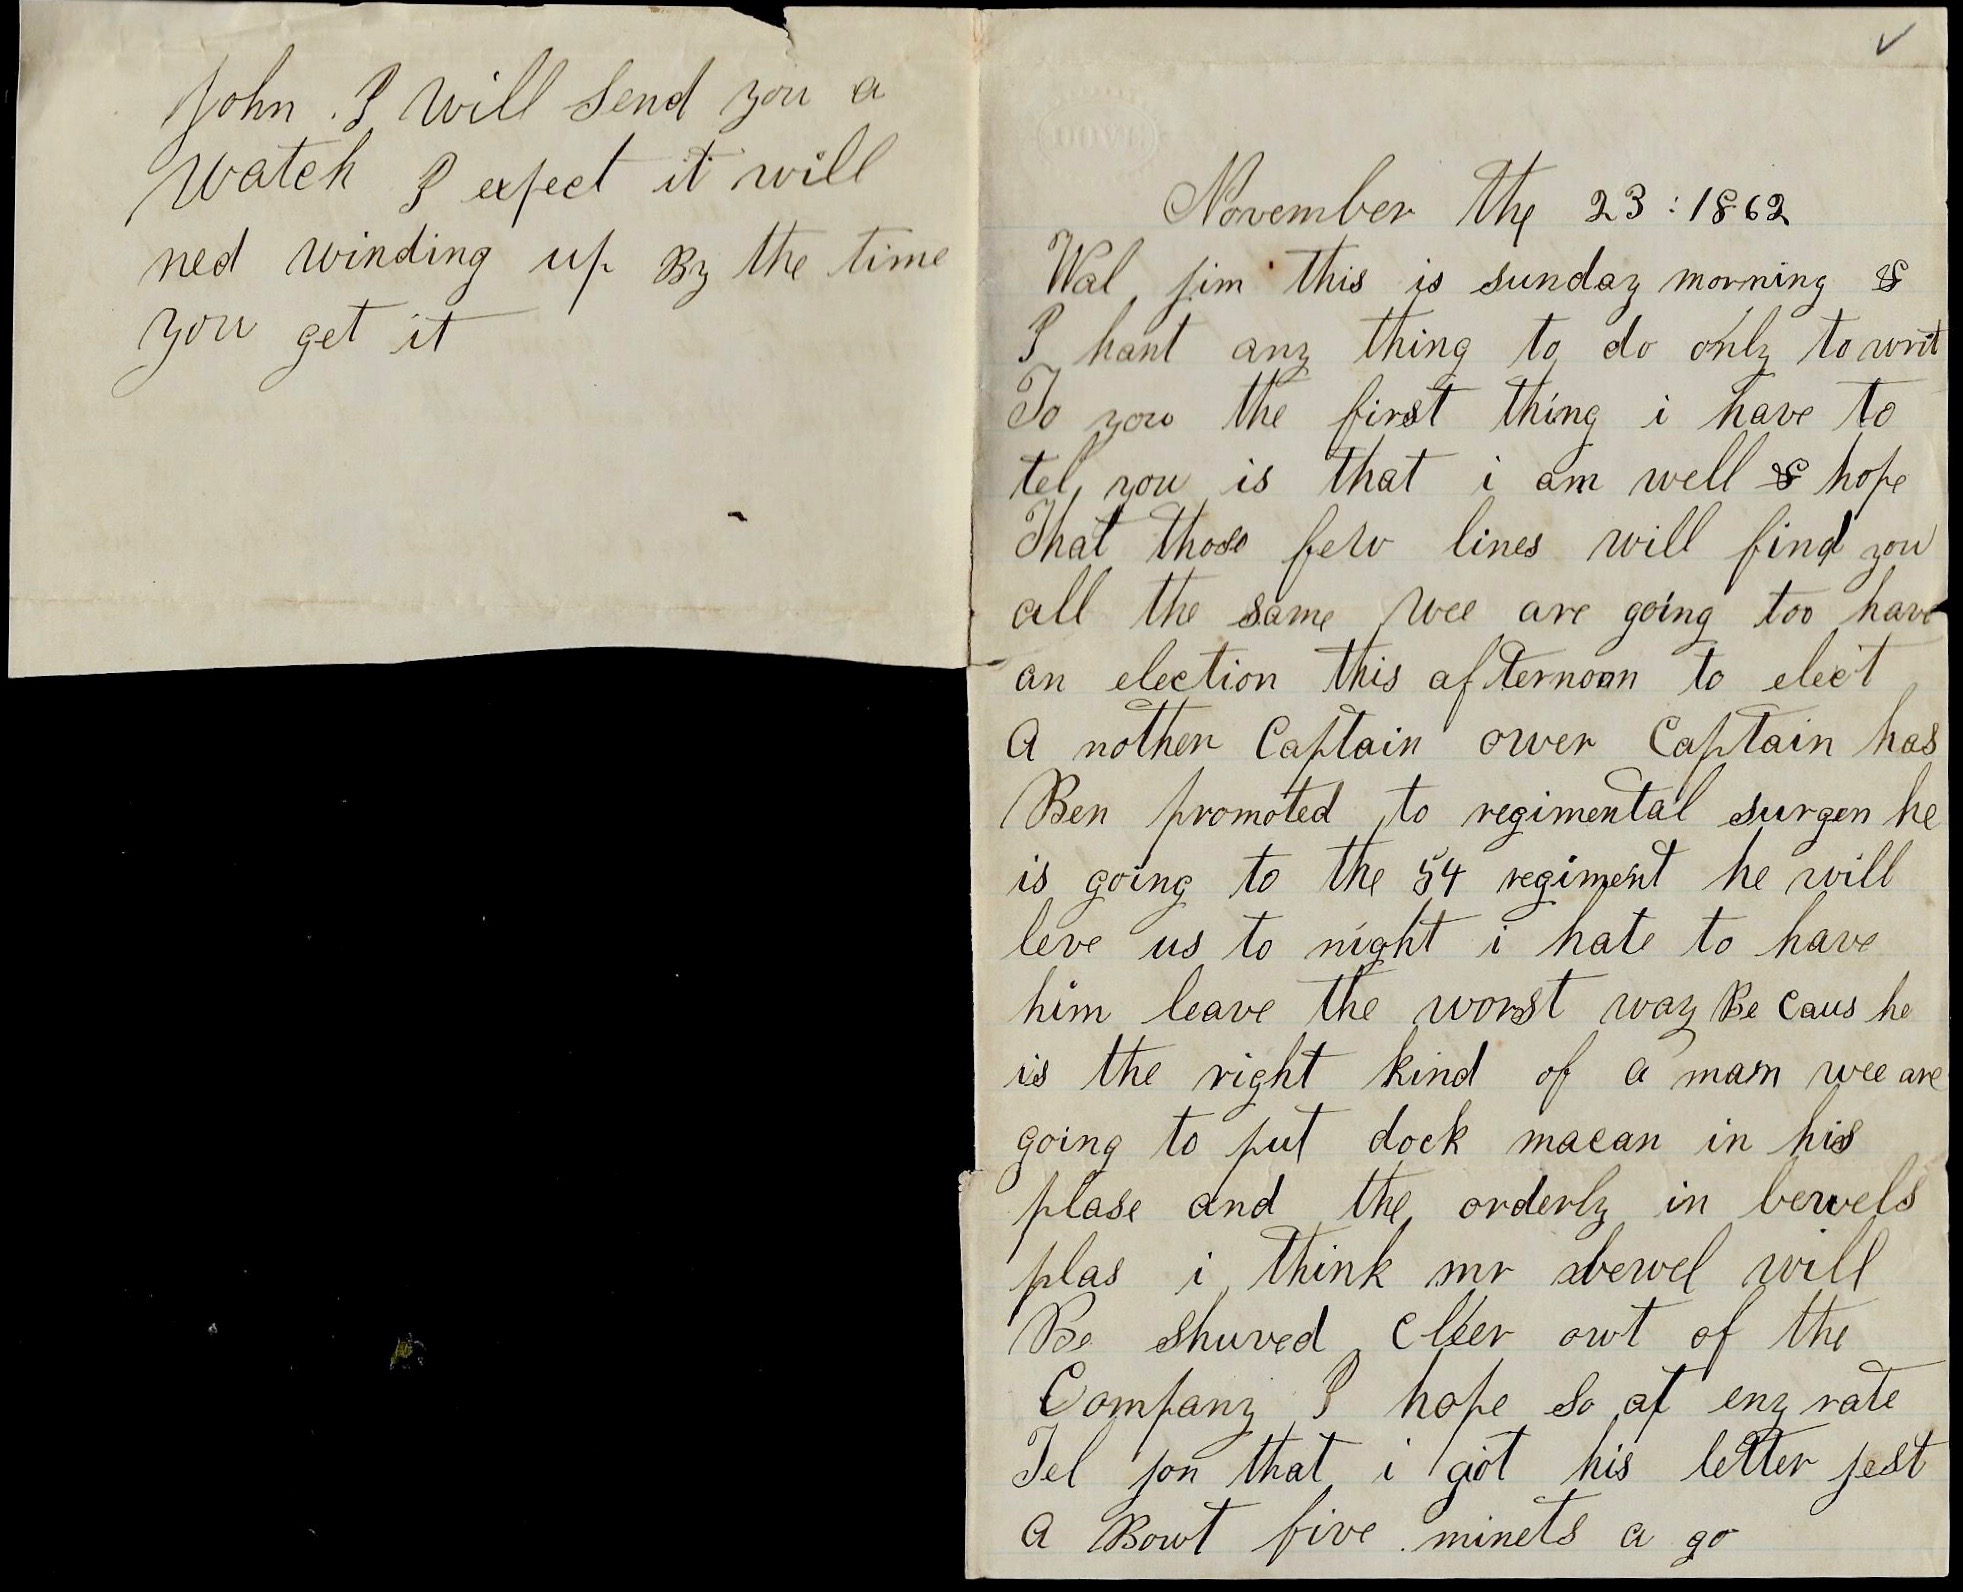 John . I will send you a
watch I expect it will
ned winding up By the time
you get it
November the 23 : 1862
Wal jim this is sunday morning &
I hant any thing to do only to writ
To you the first thing i have to
tel you is that i am well & hope
That those few lines will find you
all the same wee are going too have
an election this afternoon to elect
A nother Captain ower Captain has
Ben promoted to regimental surgen he
is going to the 54 regiment he will
leve us to night i hate to have
him leave the worst way Be Caus he
is the right kind of a man wee are
going to put dock macan in his
plase and the orderly in bewels
plas i think mr bewel will
Be shuved Cleer owt of the
Company I hope so at eny rate
Tel jon that i got his letter jest
A Bowt five minets a go